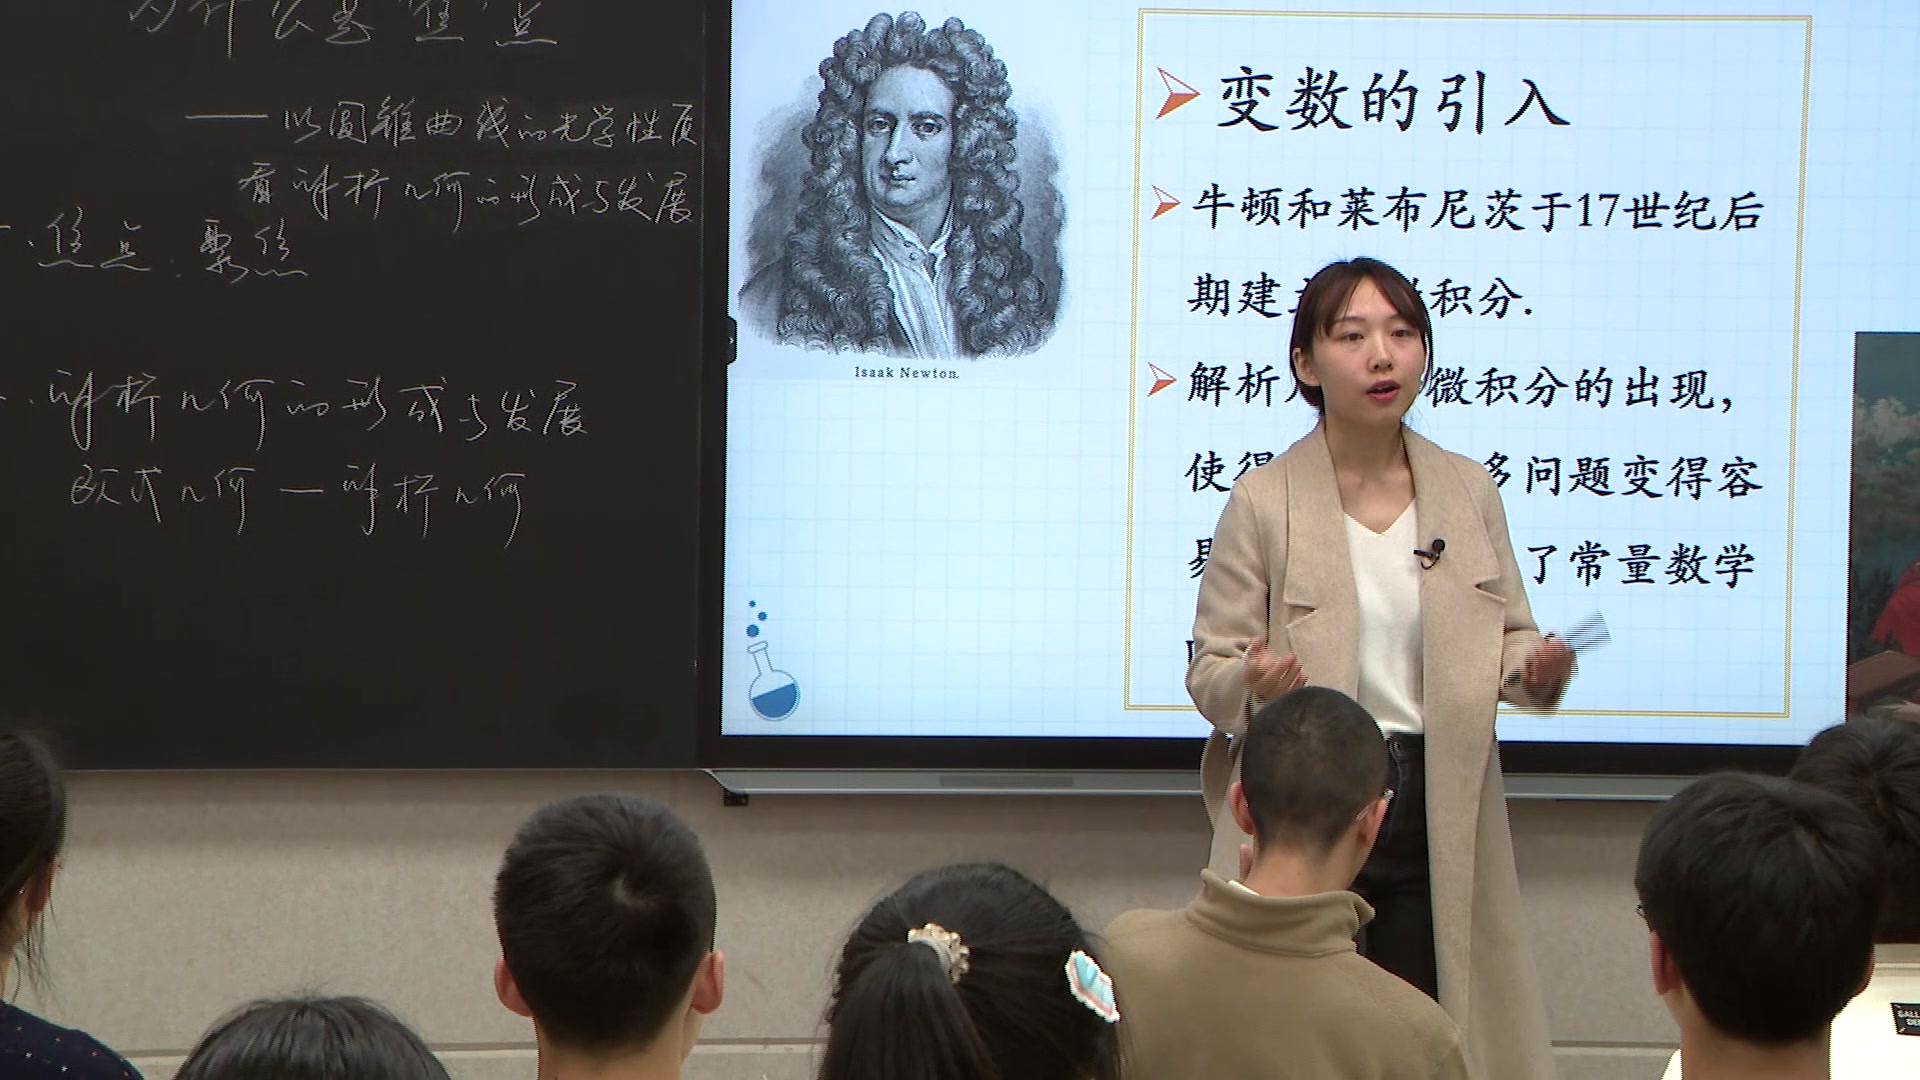 为什么是“焦”点
——以圆锥曲线的光学性质
看解析几何的形成与发展
一、焦点：聚焦
二、解析几何的形成与发展
欧式几何—解析几何
Isaak Newton.
变数的引入
牛顿和莱布尼茨于17世纪后
期建 积分.
解析 微积分的出现，
使得 多问题变得容
易 了常量数学